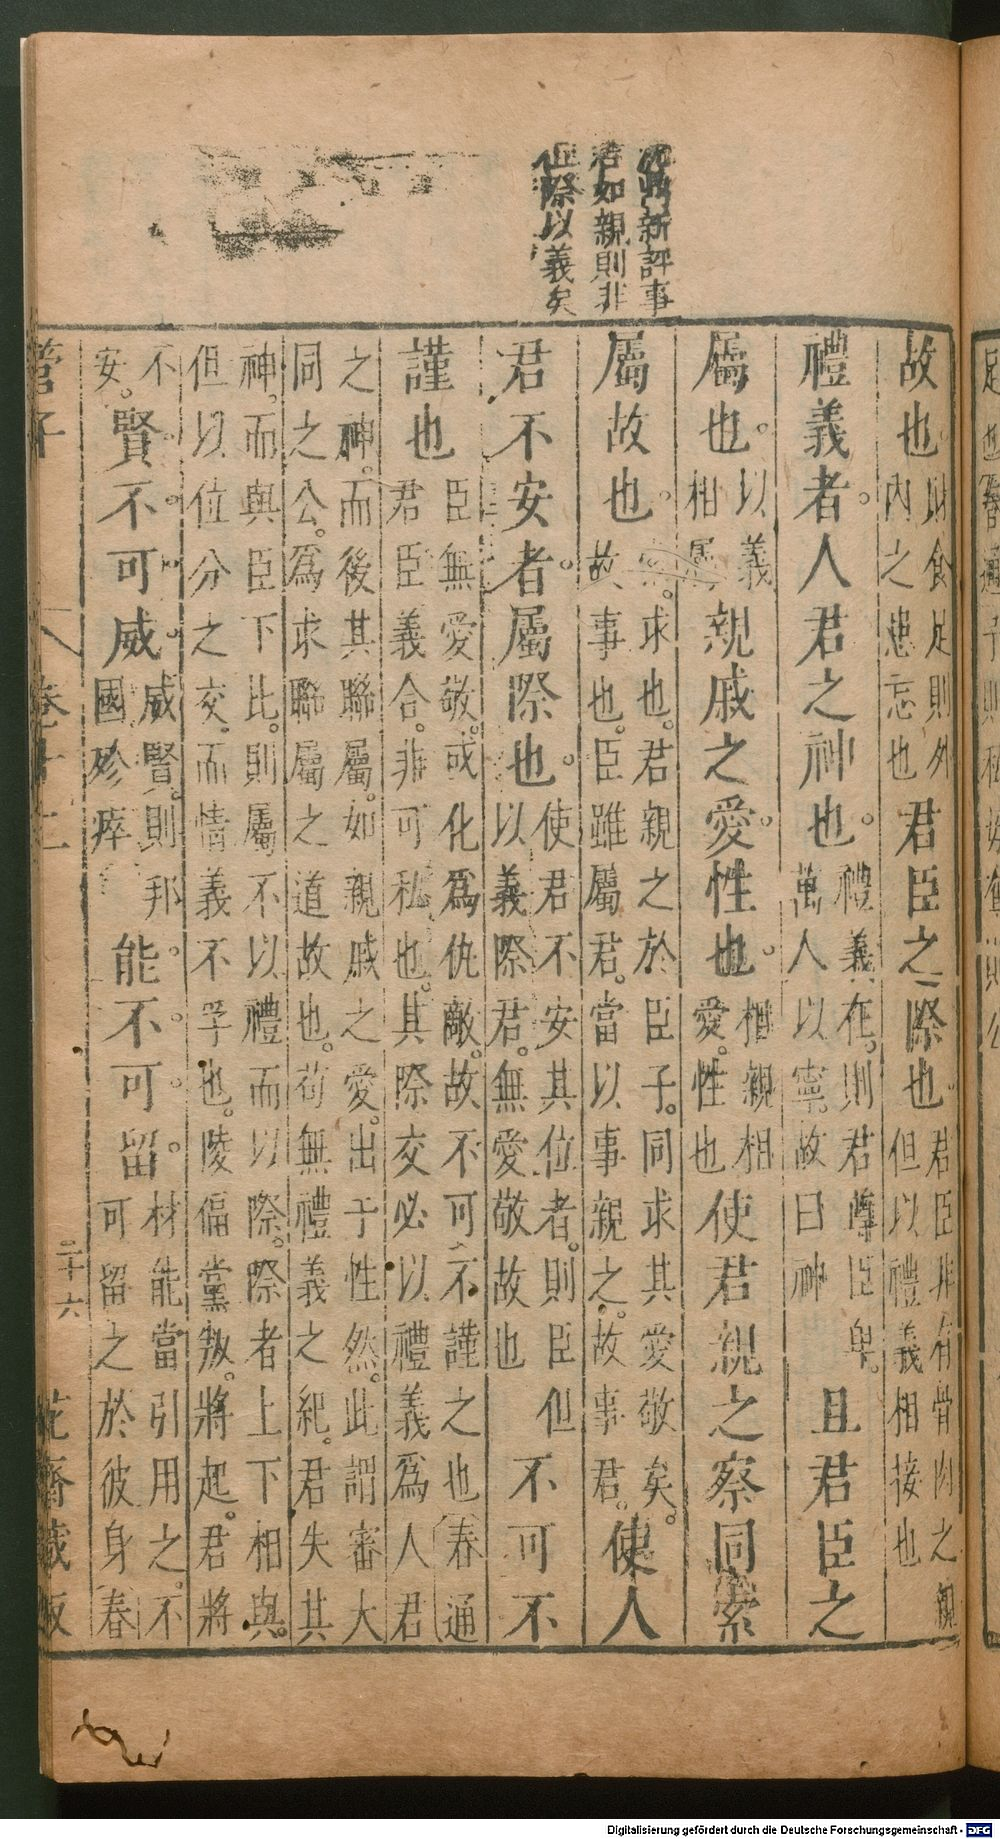 新評事
君如親則非
際以義矣
故也以財食足則外內之患忘也君臣之際也君臣非有骨肉之親但以禮義相接也
禮義者。人君之神也。禮義在。則君尊臣卑。萬人以寧。故曰神且君臣之
屬也。以義相屬親戚之愛。性也。相親相愛。性也使君親之察同索
屬故也。索。求也。君親之於臣子。同求其愛敬矣。故事也。臣雖屬君。當以事親之。故事君。使人
君不安者。屬際也。使君不安其位者。則臣但以義際君。無愛敬故也不可不
謹也臣無愛敬。或化爲仇敵。故不可不謹之也春通君臣義合。非可私也。其際交必以禮義爲人君
之神。而後其聯屬。如親戚之愛。出于性然。此謂審大同之公。爲求聯屬之道故也。苟無禮義之紀。君失其
神。而與臣下比。則屬不以禮而以際。際者上下相與。但以位分之交。而情義不孚也。陵偪黨叛。將起。君將
不安。賢。不。可。威。威賢。則邦國殄瘁能。不。可。留。材能當引用之。不可留之於彼身春
管子
卷十二
二十六
花齋藏板
Digitalisierung gefördert durch die Deutsche Forschungsgemeinschaft - DFG